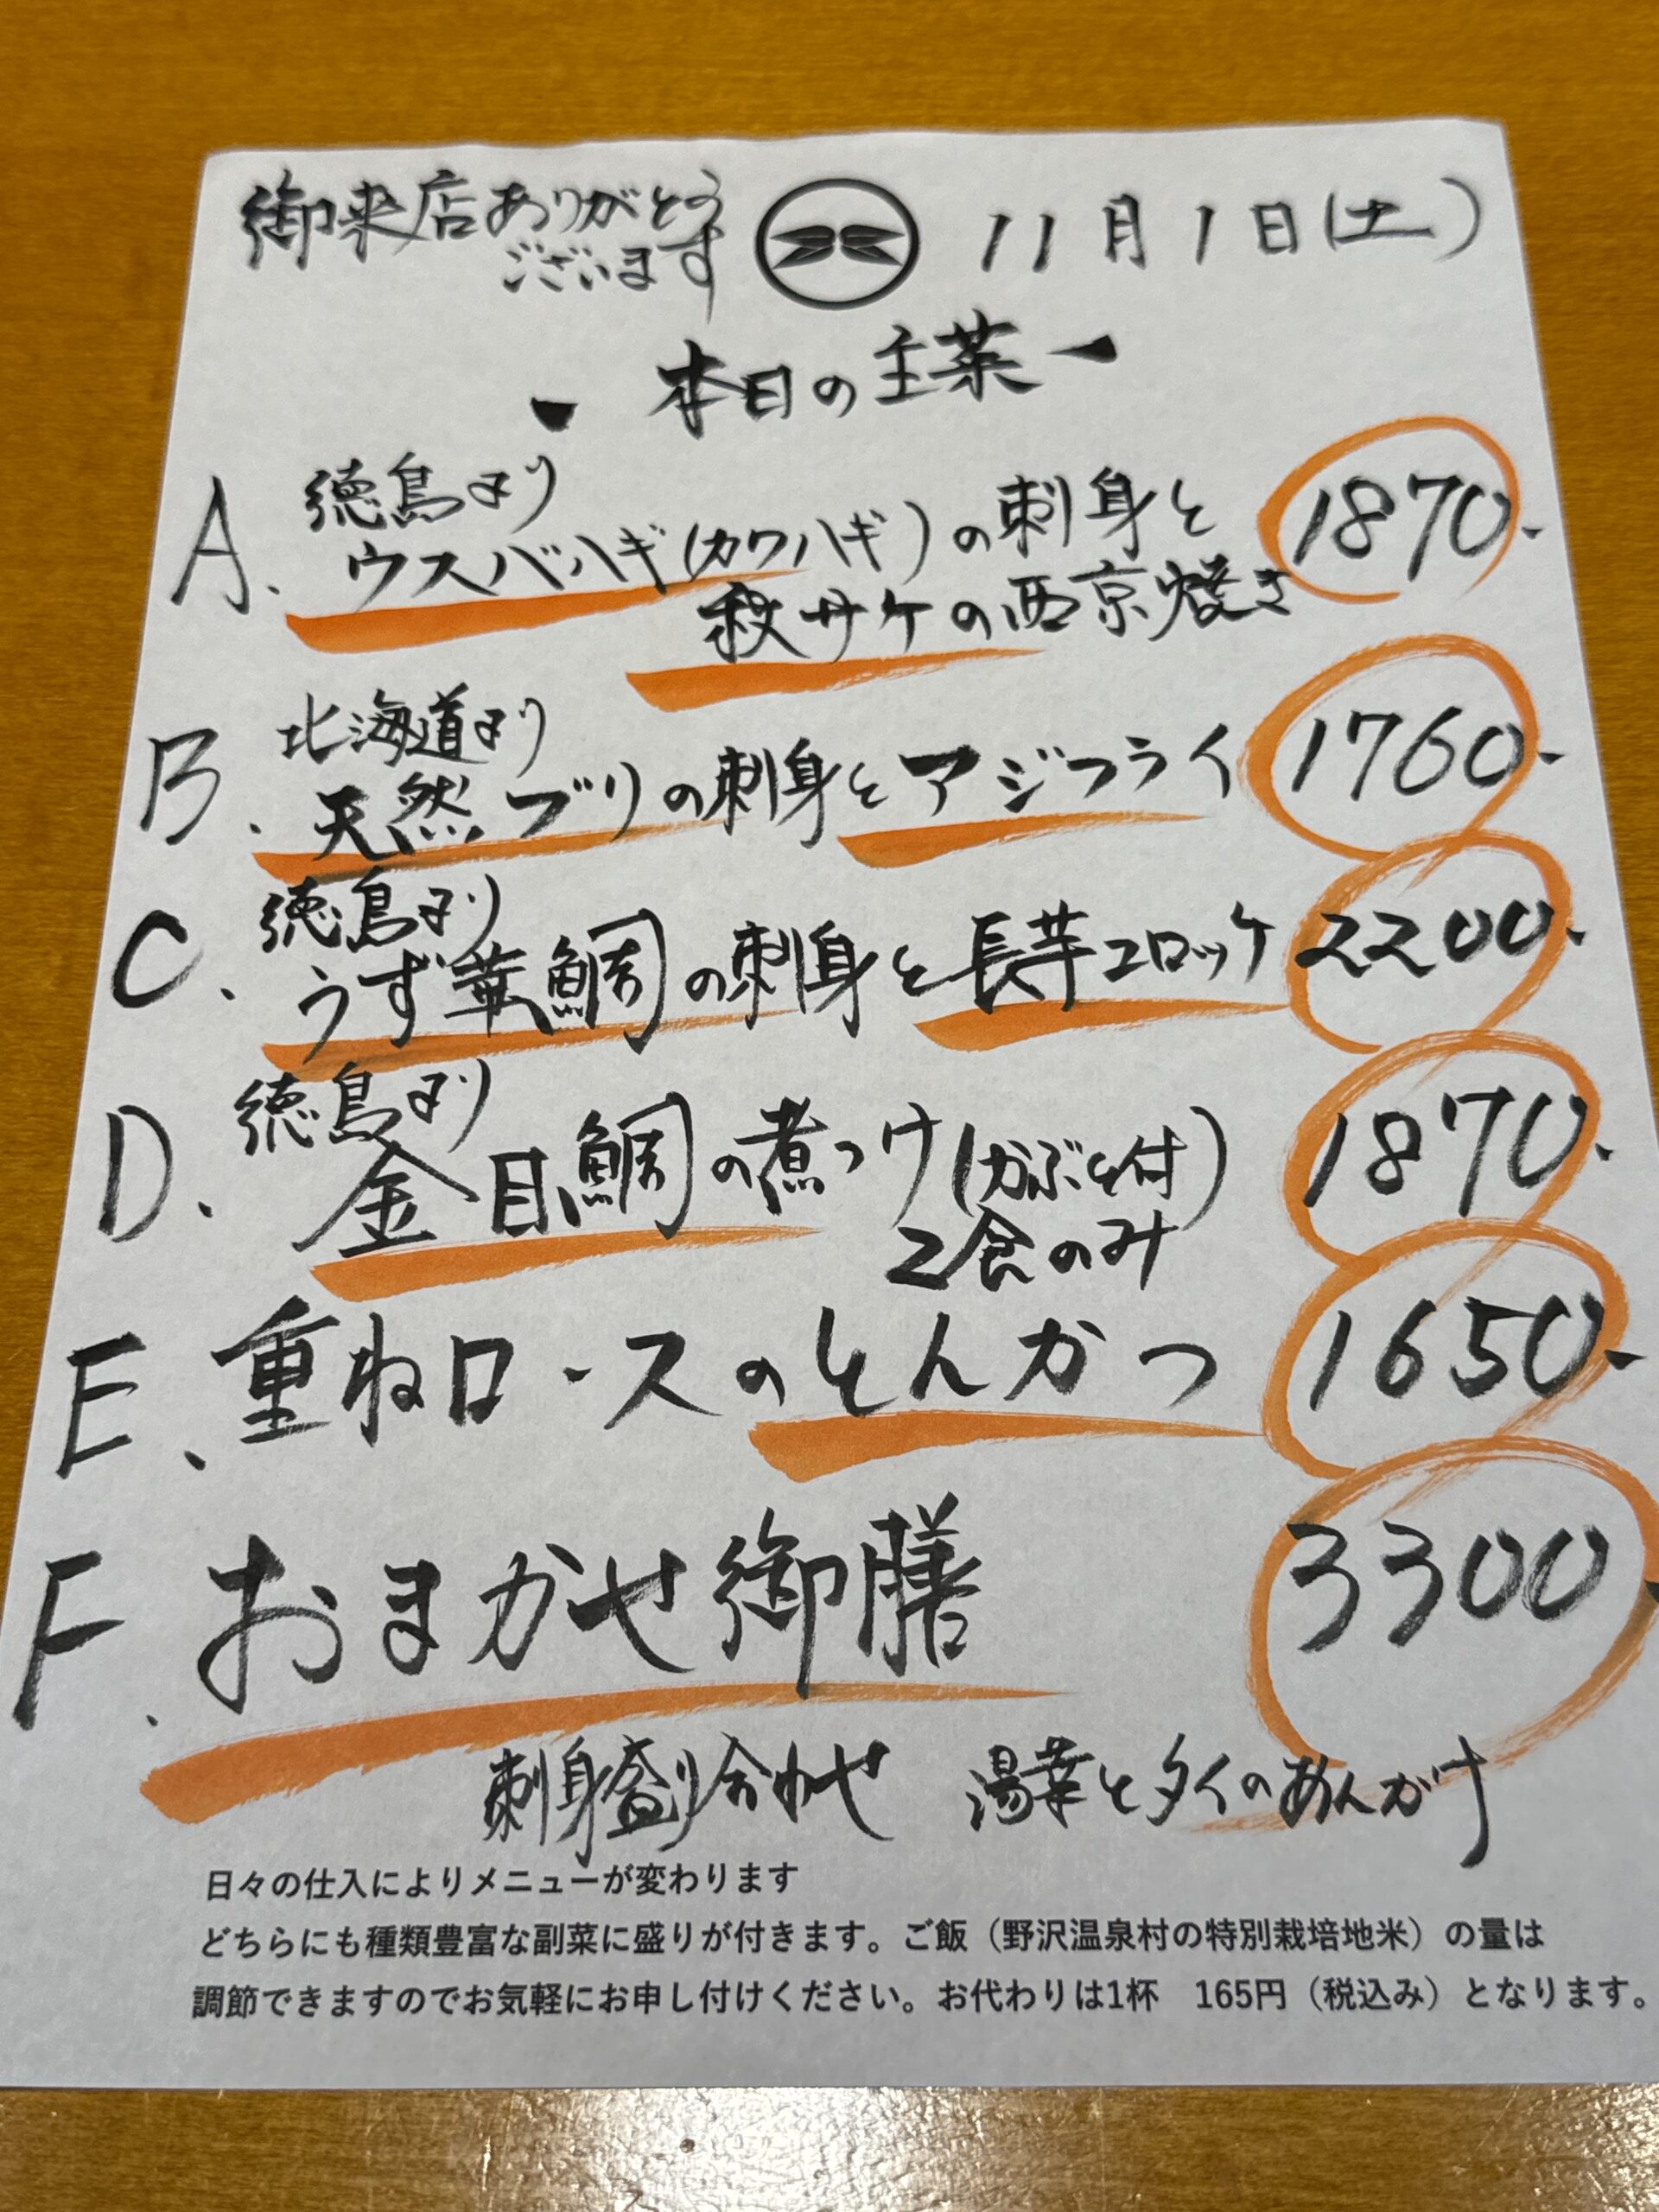 御来店ありがとう
ございます
11月1日(土)
本日の主菜
A. 徳島より
ウスバハギ(カワハギ)の刺身と
秋サケの西京焼き
1870.-
B. 北海道より
天然ブリの刺身とアジフライ
1760.-
C. 徳島より
うず華鯛の刺身と長芋コロッケ
2200.-
D. 徳島より
金目鯛の煮つけ(かぶと付)
2食のみ
1870.-
E. 重ねロースのとんかつ
1650.-
F. おまかせ御膳
3300.-
刺身盛り合わせ 湯葉とタイのあんかけ
日々の仕入によりメニューが変わります
どちらにも種類豊富な副菜に盛りが付きます。ご飯（野沢温泉村の特別栽培地米）の量は
調節できますのでお気軽にお申し付けください。お代わりは1杯 165円（税込み）となります。